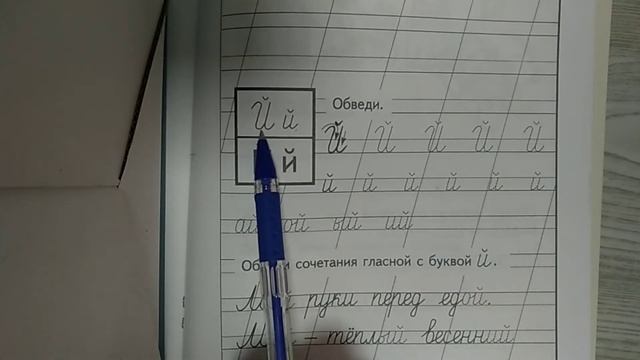 Й й
Обведи.
й
Й Й Й Й Й
й й й й й й
ый ий
сочетания гласной с буквой й.
руки перед едой.
– тёплый весенний